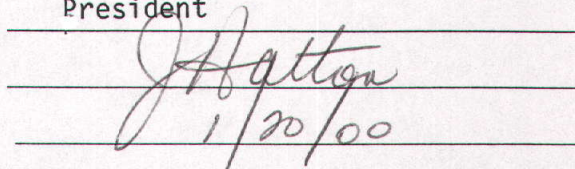 President
J Hatton
1/20/00